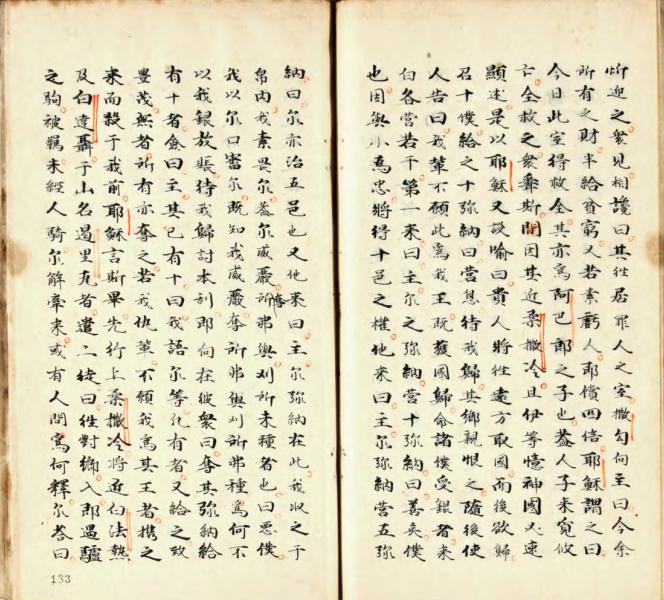 忻迎之衆見相讒曰其徃居罪人之室撒勾向主曰今余
所有之財半給貧窮又若素虧人耶償四倍耶穌謂之曰
今日此室得救全其亦為阿巴郎之子也葢人子来覓攸
亡全救之衆斯聞因其近柔撒冷且伊等憶神國必速
顯述是以耶穌又設喻曰貴人將徃遠方取國而後欲歸
召十僕給之十弥納曰營息待我歸其鄉親恨之隨後使
人告曰我輩不願此為我王既獲國歸命諸僕受銀者来
白各營若干第一来曰主尔之弥納營十弥納曰善矣僕
也因與小為忠將得十邑之權他来曰主尔弥納營五弥
納曰尔亦治五邑也又他来曰主尔弥納在此我収之于
帛內我素畏尔葢尔威嚴奪所弗與刈所未種者也曰悪僕
我以尔口審尔既知我威嚴奪所弗與刈所弗種為何不
以我銀放賬待我歸討本利即向在彼衆曰奪其弥納給
有十者僉曰主其已有十曰我語尔等凢有者又給之致
豊茂無者所有亦奪之若我仇輩不願我為其王者携之
来而殺于我前耶穌言斯畢先行上柔撒冷將近白法熱
及白達聶于山名遏里尭者遣二徒曰徃對鄉入即遇驢
之駒被羈未經人騎尔解牽来或有人問為何釋尔荅曰
133